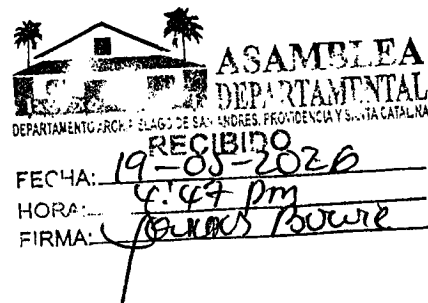 ASAMBLEA
DEPARTAMENTAL
DEPARTAMENTO ARCHIPIELAGO DE SAN ANDRES, PROVIDENCIA Y SANTA CATALINA
RECIBIDO
FECHA: 19-05-2026
HORA: 4:47 pm
FIRMA: